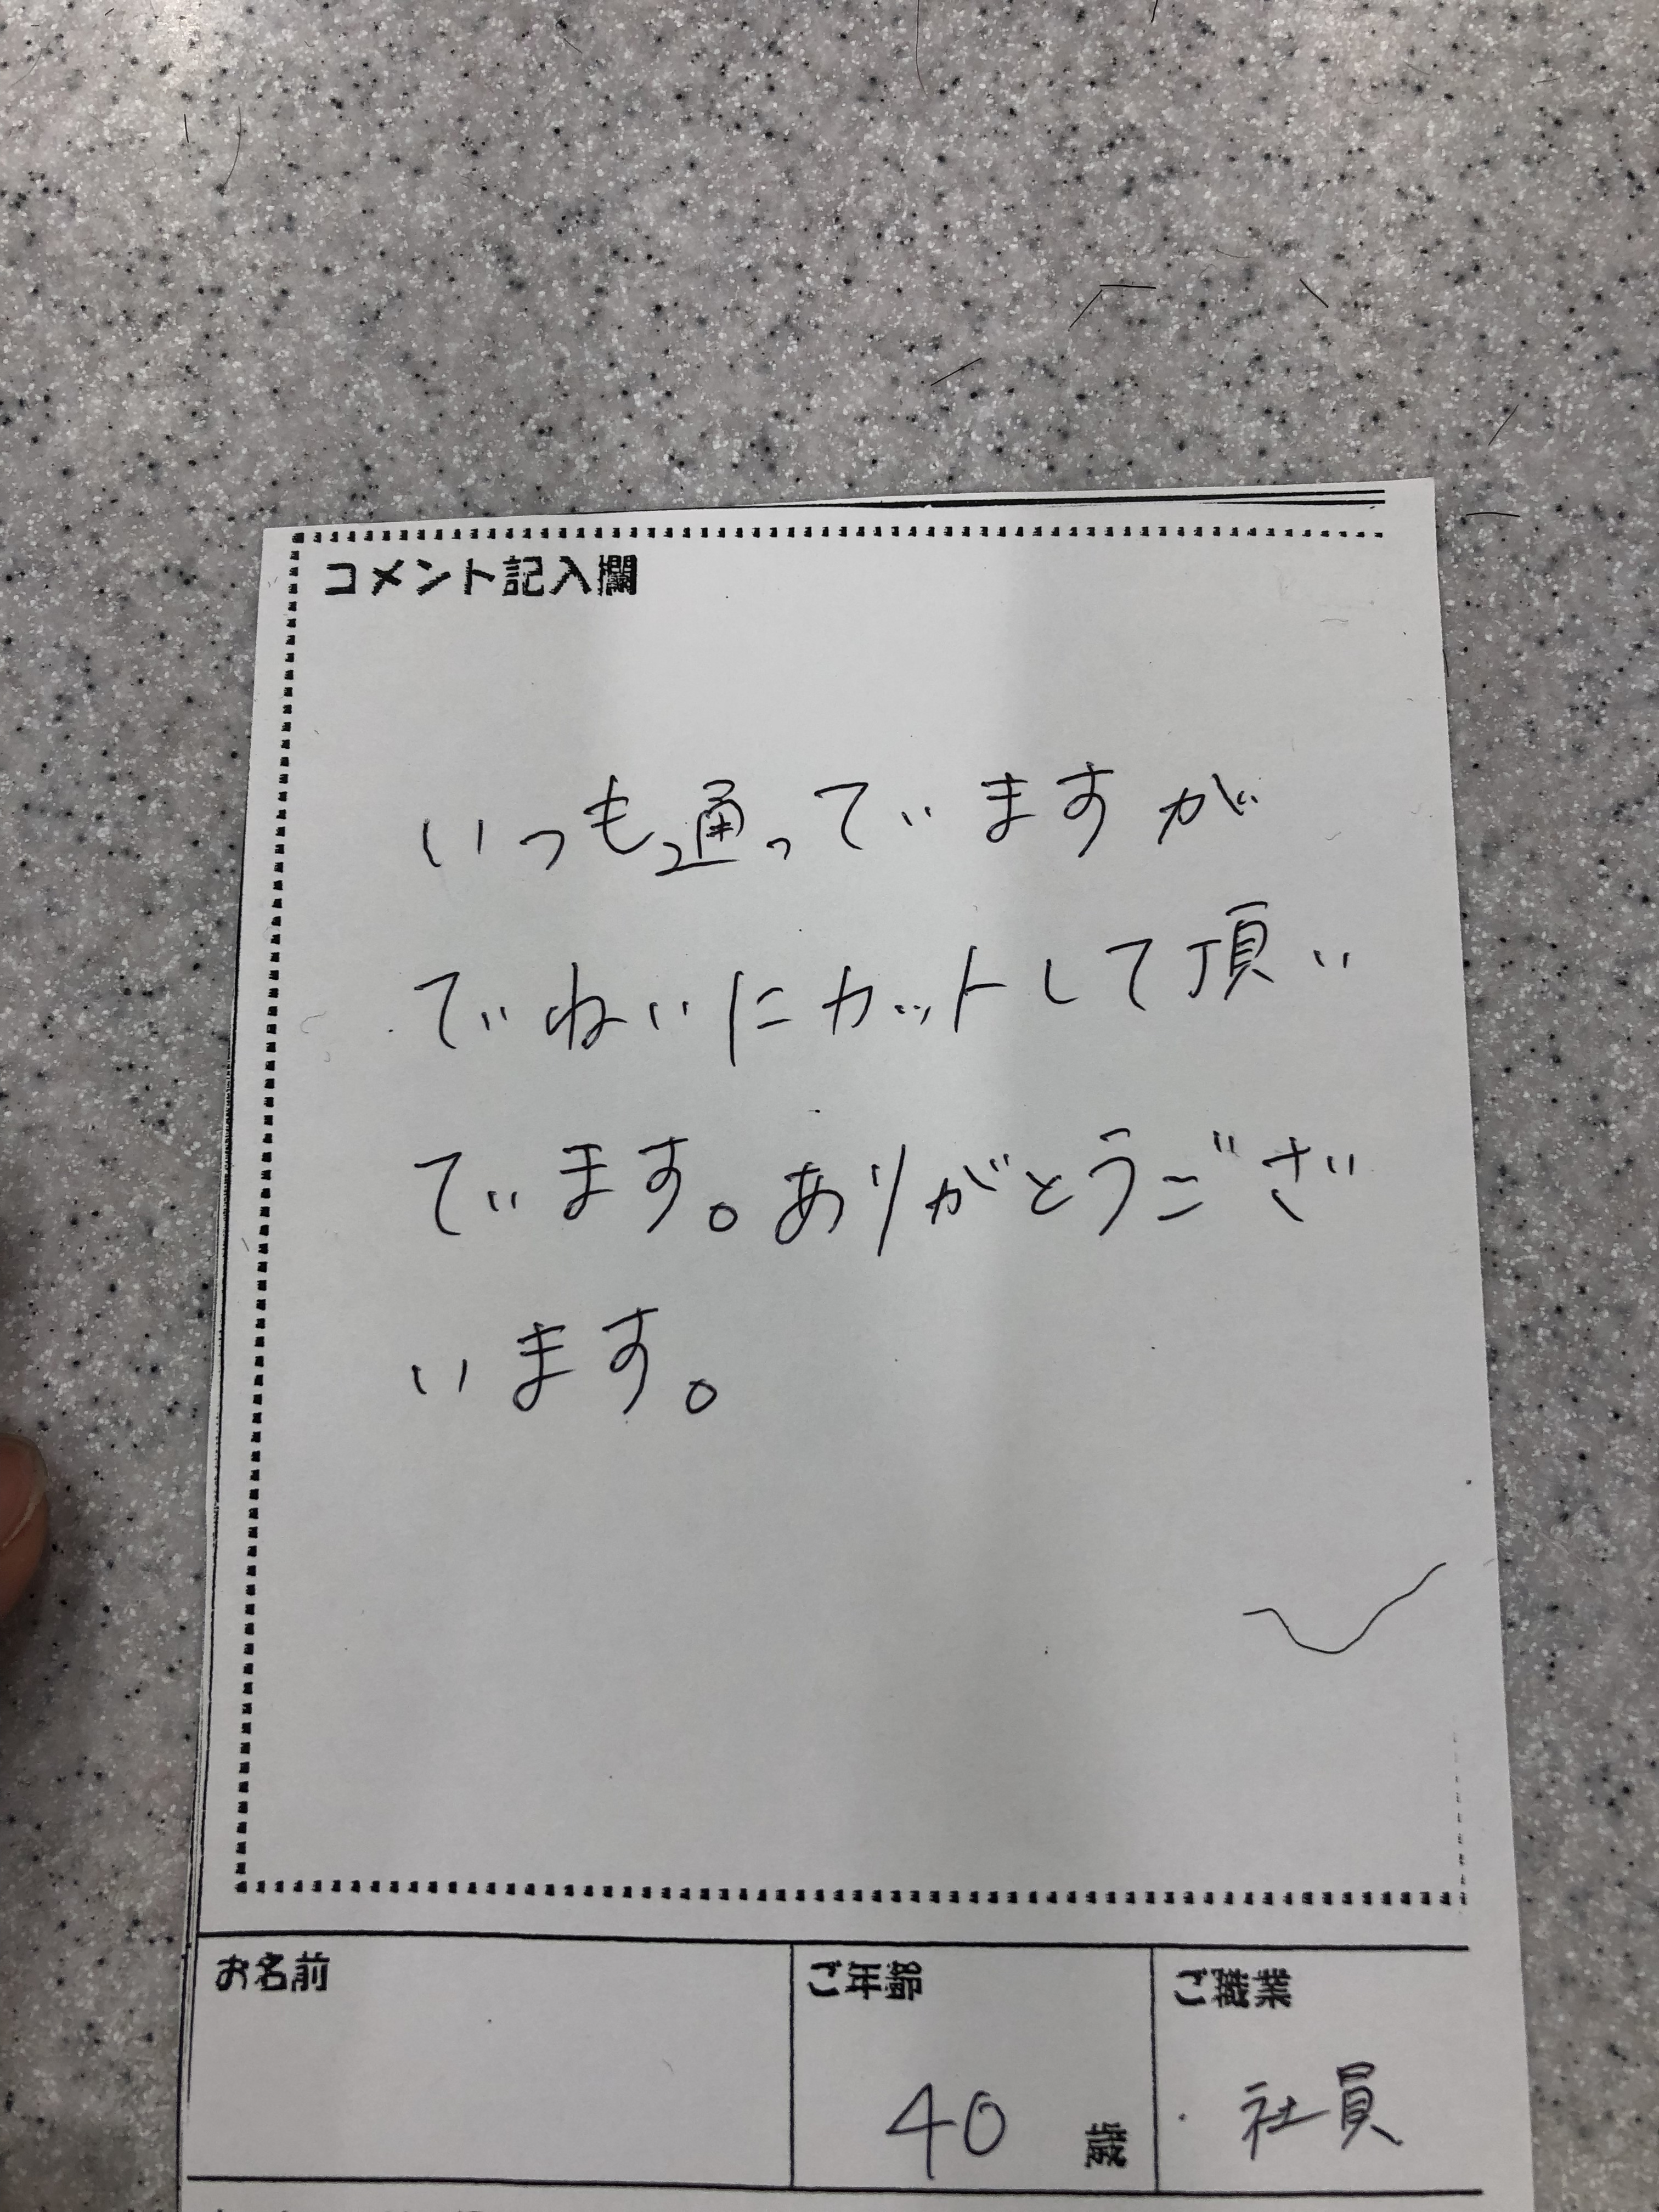 コメント記入欄
いつも通っていますが
ていねいにカットして頂い
ています。ありがとうござ
います。
お名前 ご年齢 ご職業
40 歳 社員